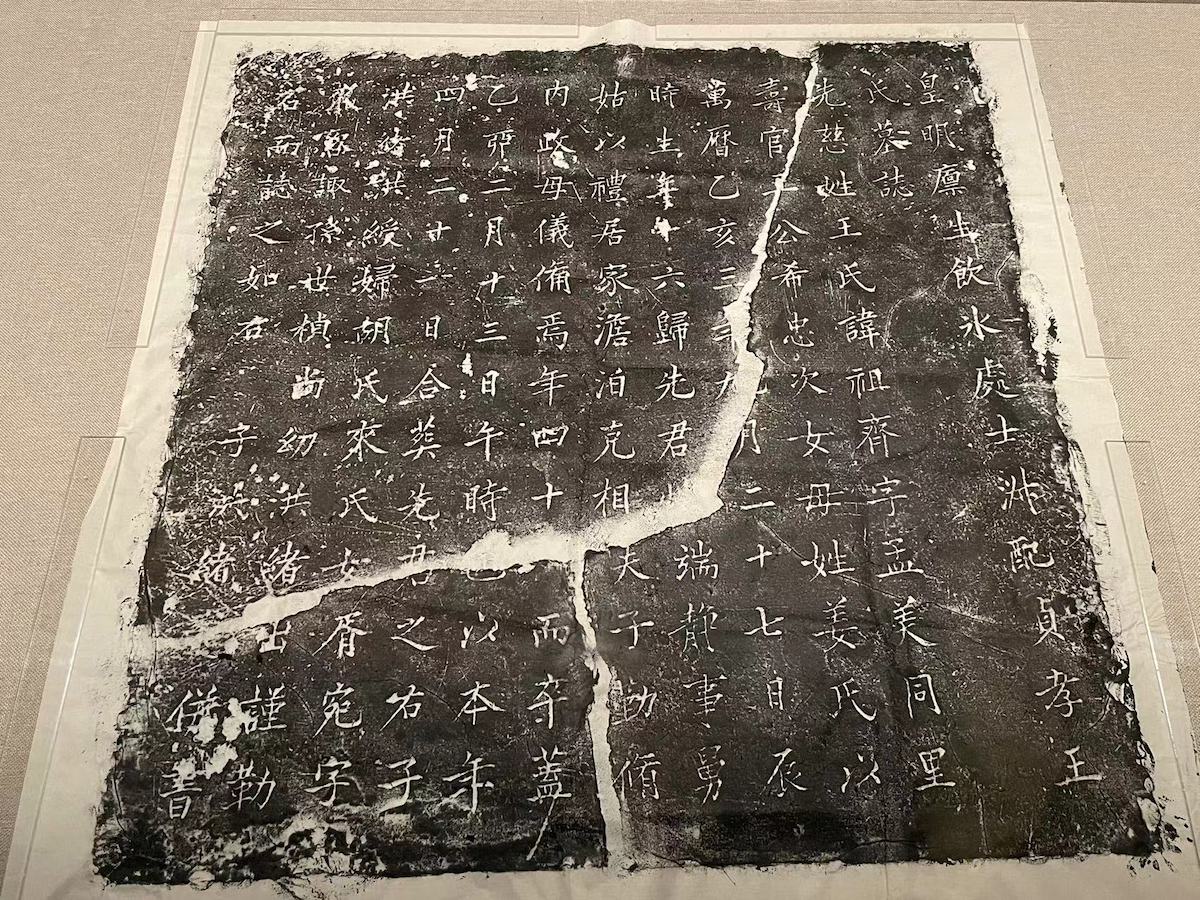 皇明廩生飲氷處士配貞孝王
氏墓誌
先慈姓王氏諱祖齊字孟美同里
壽官王公希忠次女母姓姜氏以
萬曆乙亥三年九月二十七日辰
時生年十六歸先君性端靜事舅
姑以禮居家澹泊克相夫子勤脩
内政母儀備焉年四十而卒蓋
乙卯二月十三日午時也以本年
四月二十一日合葬先君之右子
洪緒洪綬婦胡氏來氏女胥宛字
諏孫世楨尚幼洪緒出謹勒
石而誌之如右 子洪緒併書